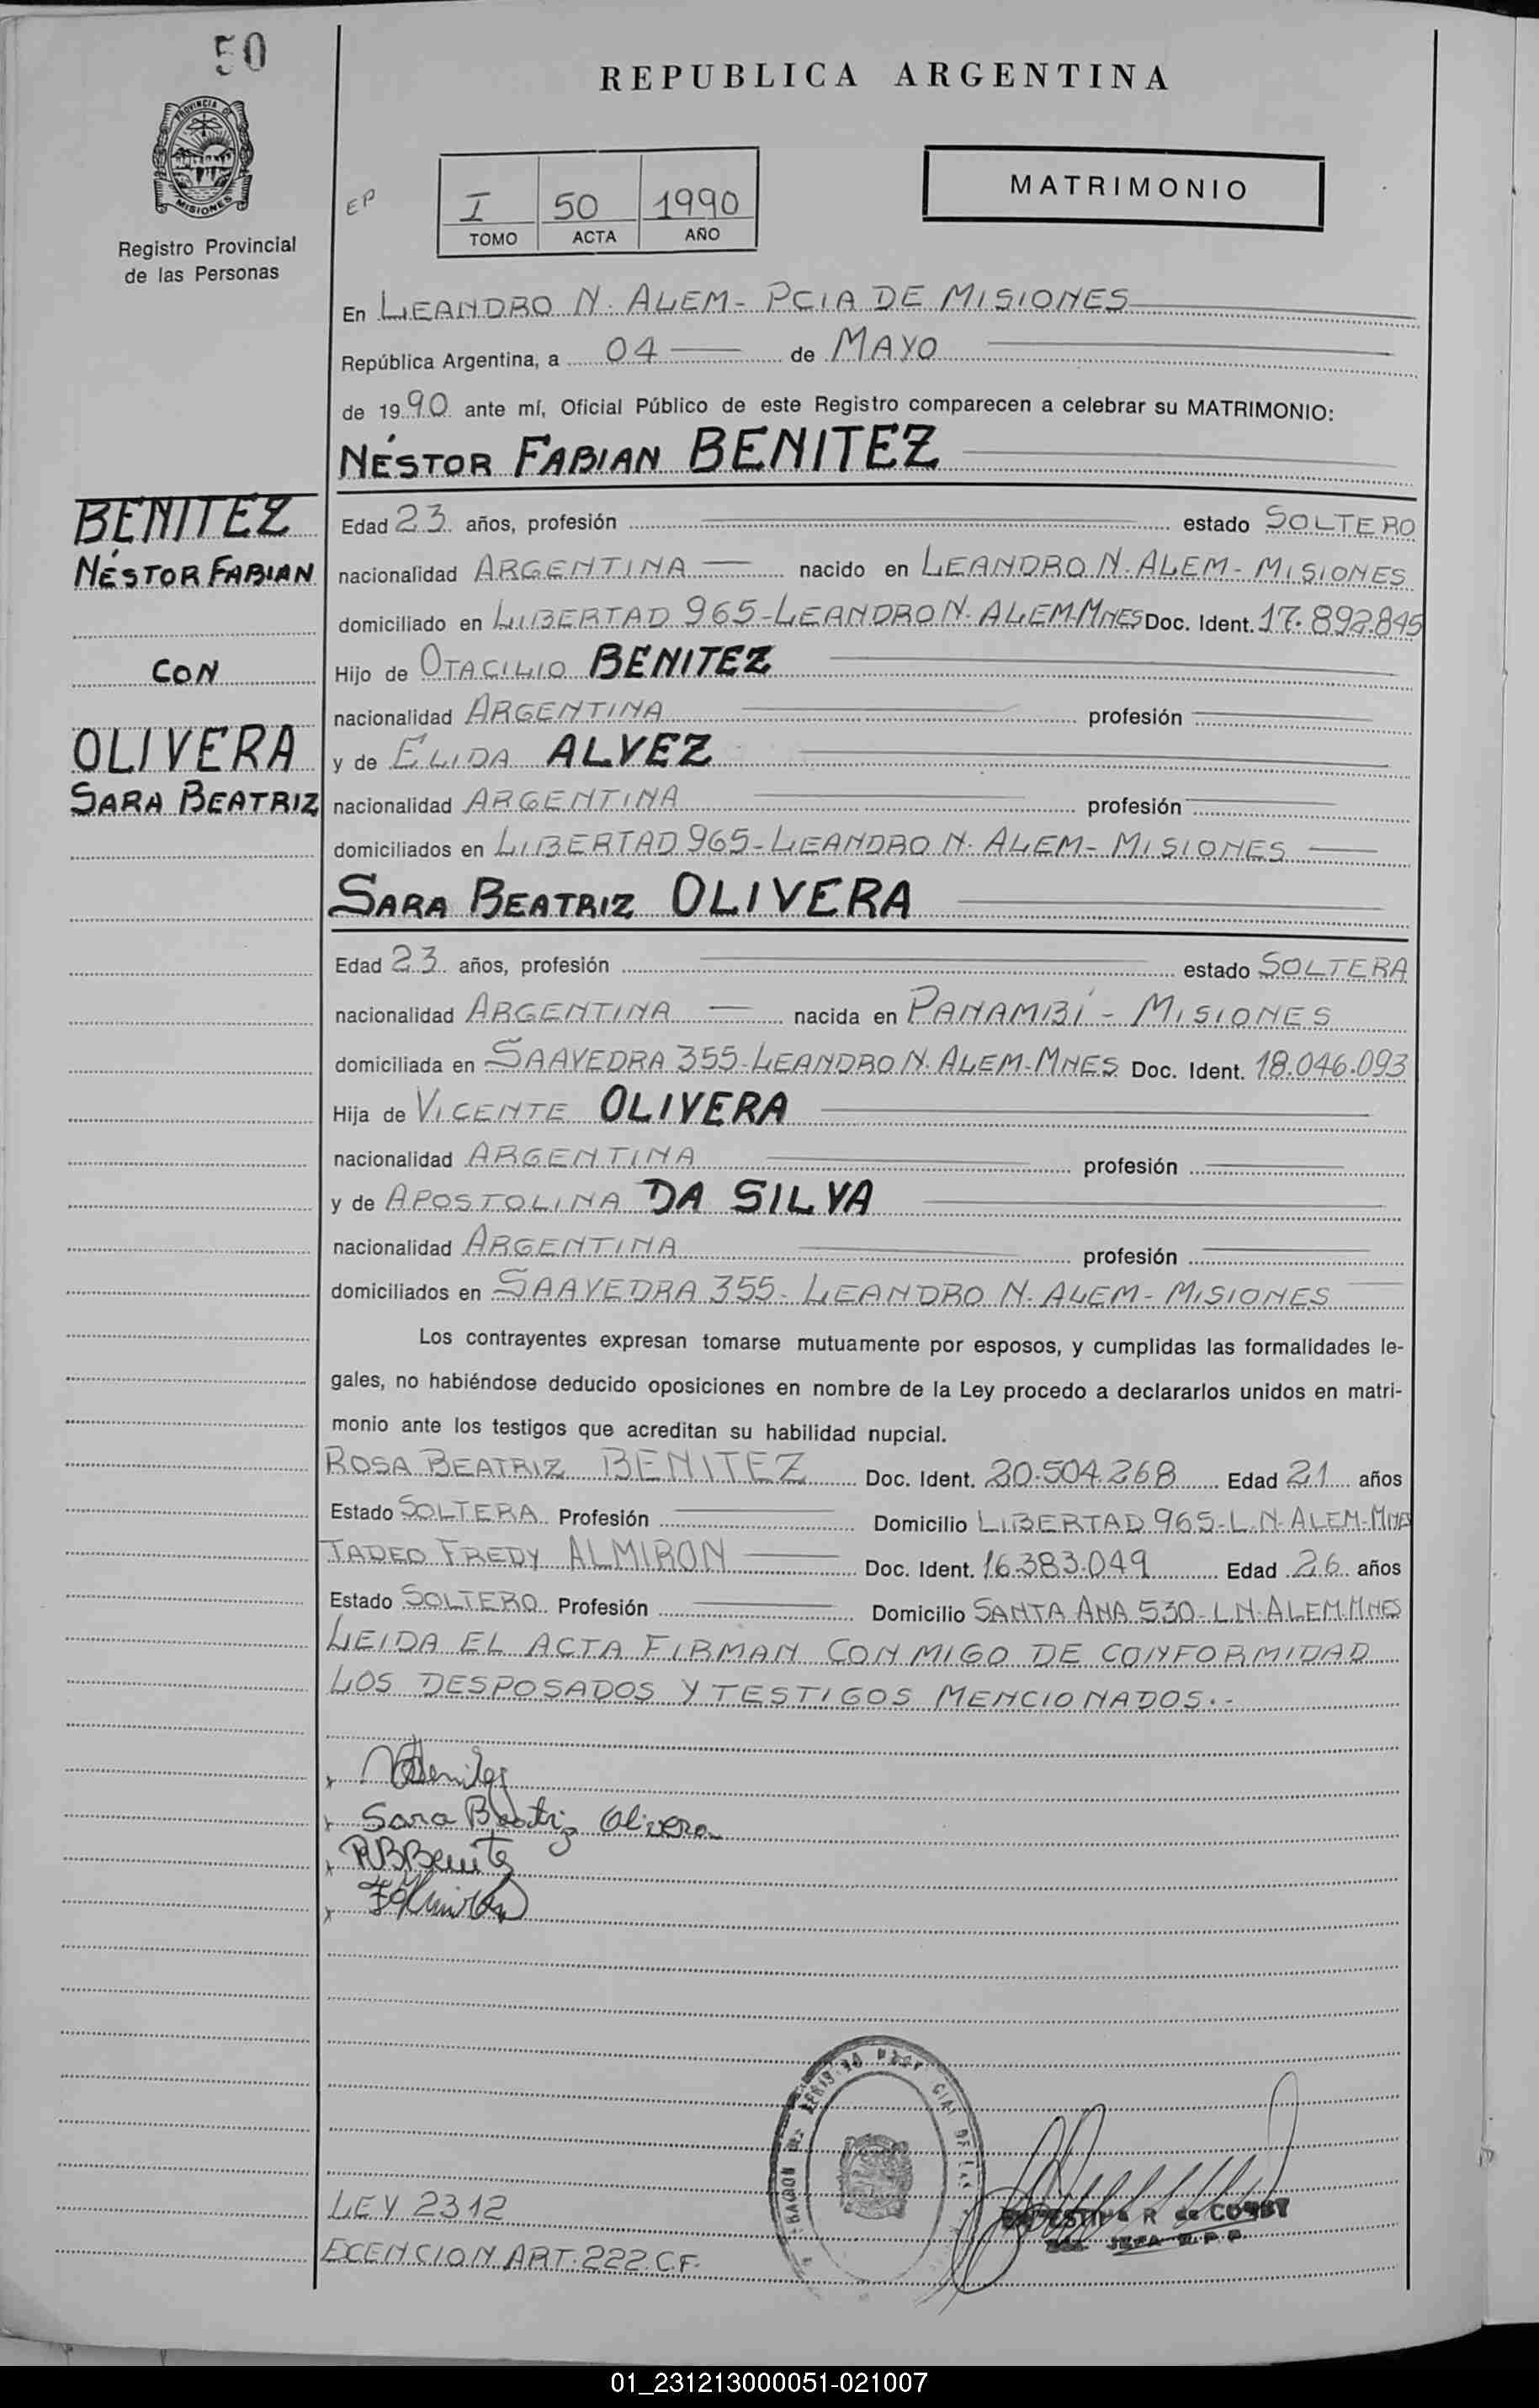 50
REPUBLICA ARGENTINA
PROVINCIA DE
MISIONES
Registro Provincial
de las Personas
EP
I 50 1990
TOMO ACTA AÑO
MATRIMONIO
En LEANDRO N. ALEM - PCIA DE MISIONES
República Argentina, a 04 de MAYO
de 1990 ante mí, Oficial Público de este Registro comparecen a celebrar su MATRIMONIO:
NÉSTOR FABIAN BENITEZ
BENITEZ
NÉSTOR FABIAN
CON
OLIVERA
SARA BEATRIZ
Edad 23 años, profesión estado SOLTERO
nacionalidad ARGENTINA nacido en LEANDRO N. ALEM - MISIONES
domiciliado en LIBERTAD 965 - LEANDRO N. ALEM-MNES Doc. Ident. 17.892.845
Hijo de OTACILIO BENITEZ
nacionalidad ARGENTINA profesión
y de ELIDA ALVEZ
nacionalidad ARGENTINA profesión
domiciliados en LIBERTAD 965 - LEANDRO N. ALEM - MISIONES
SARA BEATRIZ OLIVERA
Edad 23 años, profesión estado SOLTERA
nacionalidad ARGENTINA nacida en PANAMBÍ - MISIONES
domiciliada en SAAVEDRA 355 - LEANDRO N. ALEM-MNES Doc. Ident. 18.046.093
Hija de VICENTE OLIVERA
nacionalidad ARGENTINA profesión
y de APOSTOLINA DA SILVA
nacionalidad ARGENTINA profesión
domiciliados en SAAVEDRA 355 - LEANDRO N. ALEM - MISIONES
Los contrayentes expresan tomarse mutuamente por esposos, y cumplidas las formalidades le-
gales, no habiéndose deducido oposiciones en nombre de la Ley procedo a declararlos unidos en matri-
monio ante los testigos que acreditan su habilidad nupcial.
ROSA BEATRIZ BENITEZ Doc. Ident. 20.504.268 Edad 21 años
Estado SOLTERA Profesión Domicilio LIBERTAD 965-L.N-ALEM-MNES
TADEO FREDY ALMIRON Doc. Ident. 16.383.049 Edad 26 años
Estado SOLTERO Profesión Domicilio SANTA ANA 530-L.N-ALEM.MNES
LEIDA EL ACTA FIRMAN CONMIGO DE CONFORMIDAD
LOS DESPOSADOS Y TESTIGOS MENCIONADOS.-
x Benitez
x Sara Beatriz Olivera
x RBBenitez
x FAlmiron
LEY 2312
ECENCION ART. 222. C.F.
R de
JEFA R.P.P
01_231213000051-021007